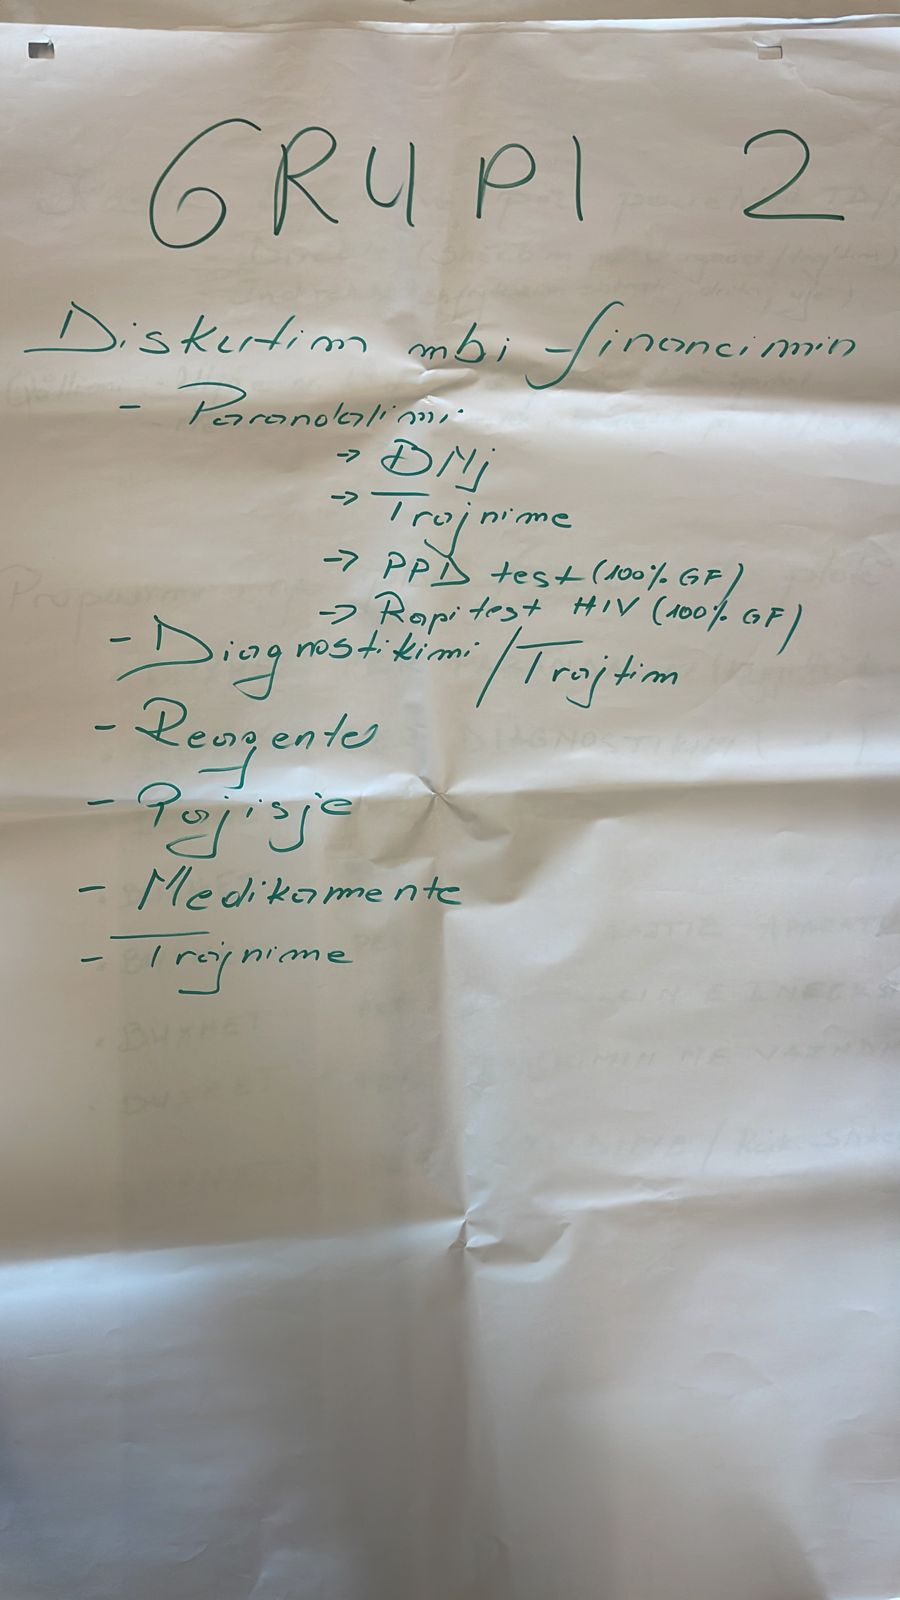 GRUPI 2
Diskutim mbi financimin
- Parandalimi
→ BMj
→ Trajnime
→ PPD test (100% GF)
→ Rapi test HIV (100% GF)
- Diagnostikimi / Trajtim
- Reagente
- Pajisje
- Medikamente
- Trajnime